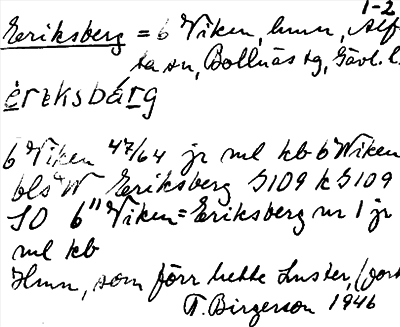 1-2
Eriksberg = 6 Viken, hmn, Alf
ta sn, Bollnäs tg, Gävl. l.
èrıksbárg
6 Viken 47/64 jr ml kb 6 Wiken
bls W Eriksberg S109 k S109
JO 6" Viken = Eriksberg nr 1 jr
ml kb
Hmn, som förr hette Luster, (jord
T. Birgerson 1946